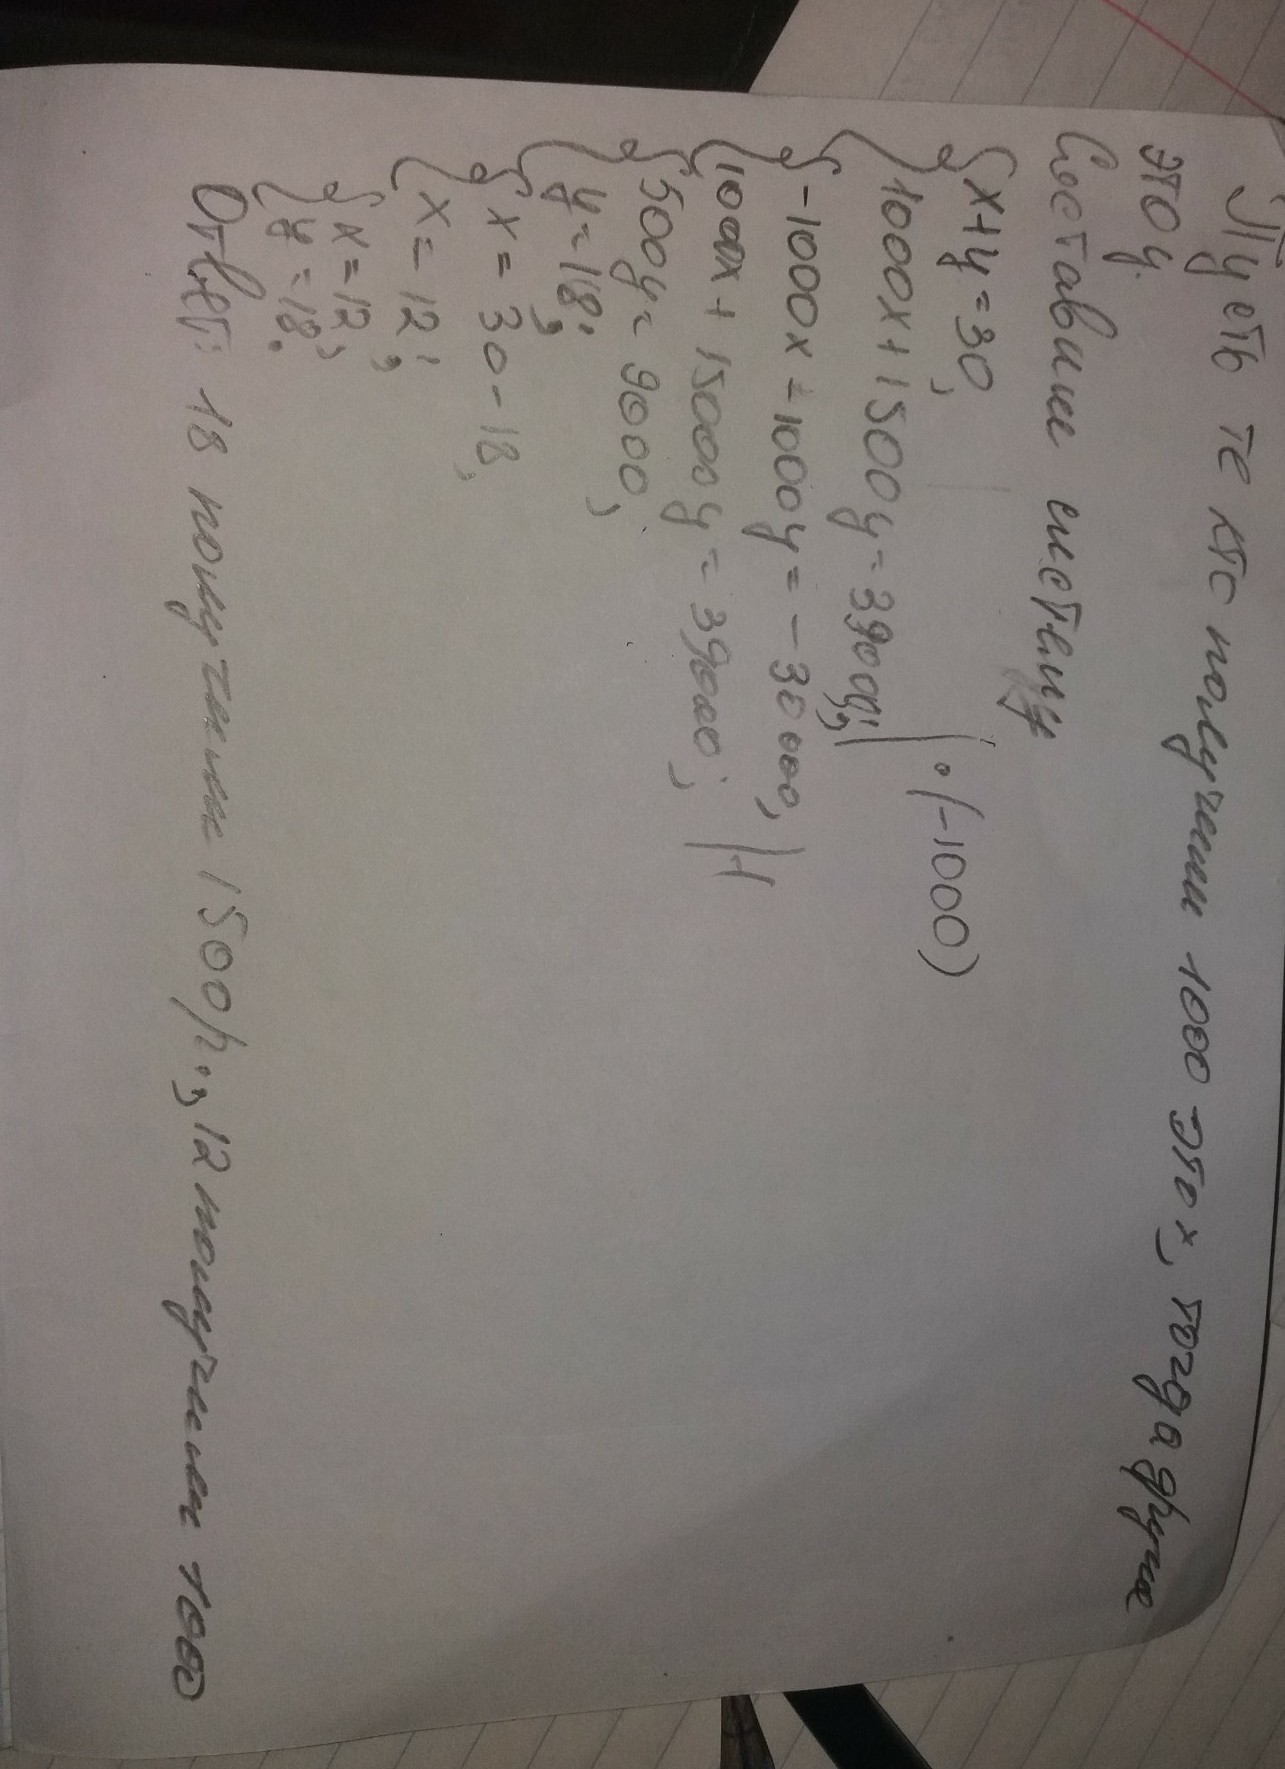 Пусть те кто получили 1000 это x, тогда другие
это y.
Составим систему
{x+y=30, | •(-1000)
{1000x+1500y=39000; |
{-1000x-1000y=-30000,
{1000x+1500y=39000; | +
{500y=9000,
{y=18;
{x=30-18,
{x=12;
{x=12,
{y=18.
Ответ: 18 получили 1500р., 12 получили 1000